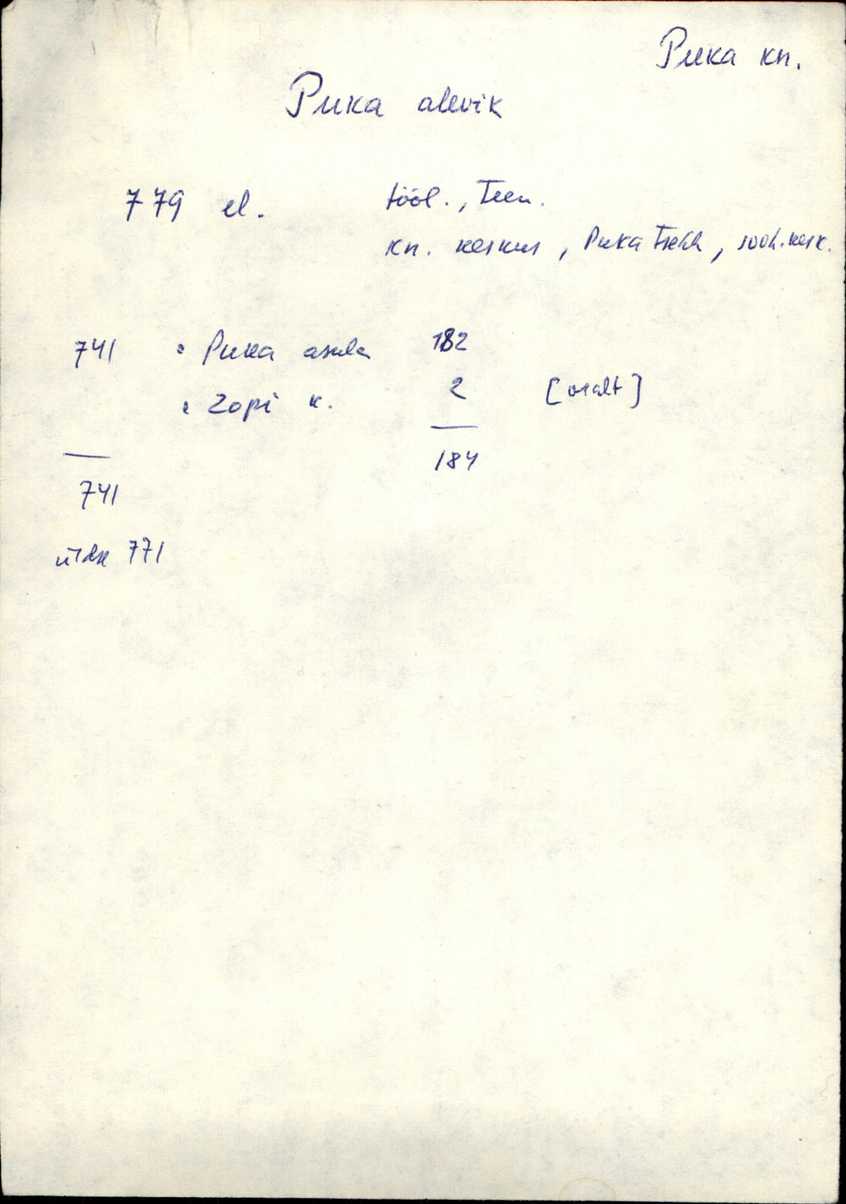 Puka kn.
Puka alevik
779 el. tööl., Teen.
kn. keskus, Puka Tsehh, sooh. kesk.
741 Puka asula 182
Zopi k. 2 [osalt]
184
741
üldk 771